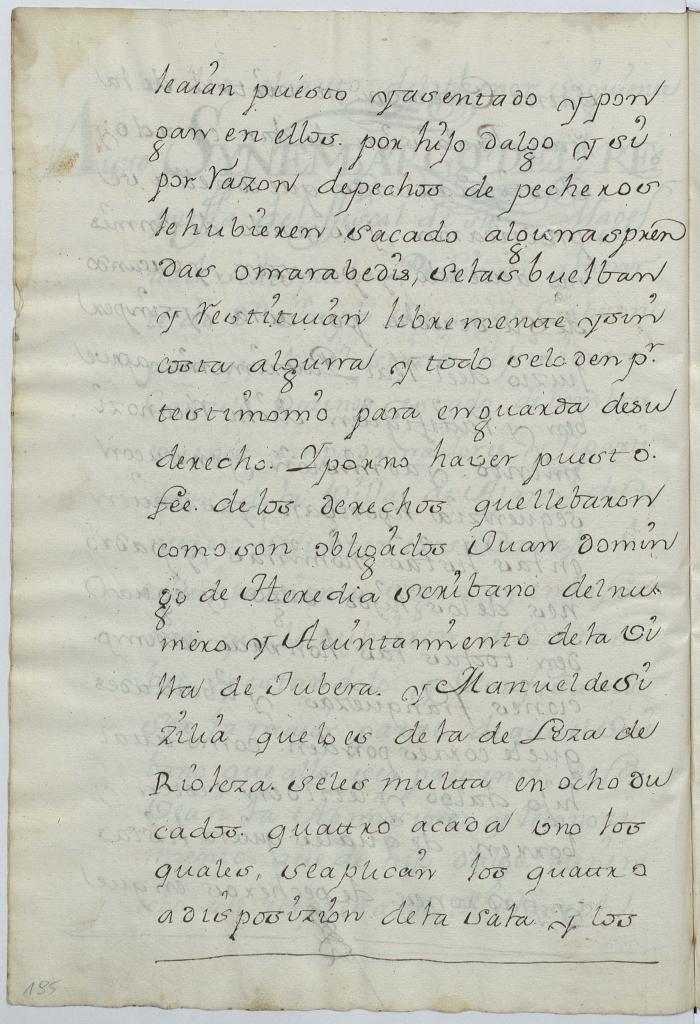 leaian puesto yasentado y pon
gan en ellos. por hijo dalgo y si
por Razon depechos de pecheros
lehubieren sacado algunas pren
das omarabedis, selas buelban
y Restituian libremente ysin
costa alguna y todo selo den pr.
testimonio para enguarda desu
derecho. Y porno haver puesto.
fee. delos derechos quellebaron
como son obligados Juan Domin
go de Heredia scribano delnu=
mero y Aiuntamiento dela Vi
lla de Jubera. y Manuel de Si
zilia quelo es dela de Leza de
Rioleza. seles multta en ocho Du
cados. quattro acada uno los
quales, seaplican los quattro
a disposizion dela sala y los
185